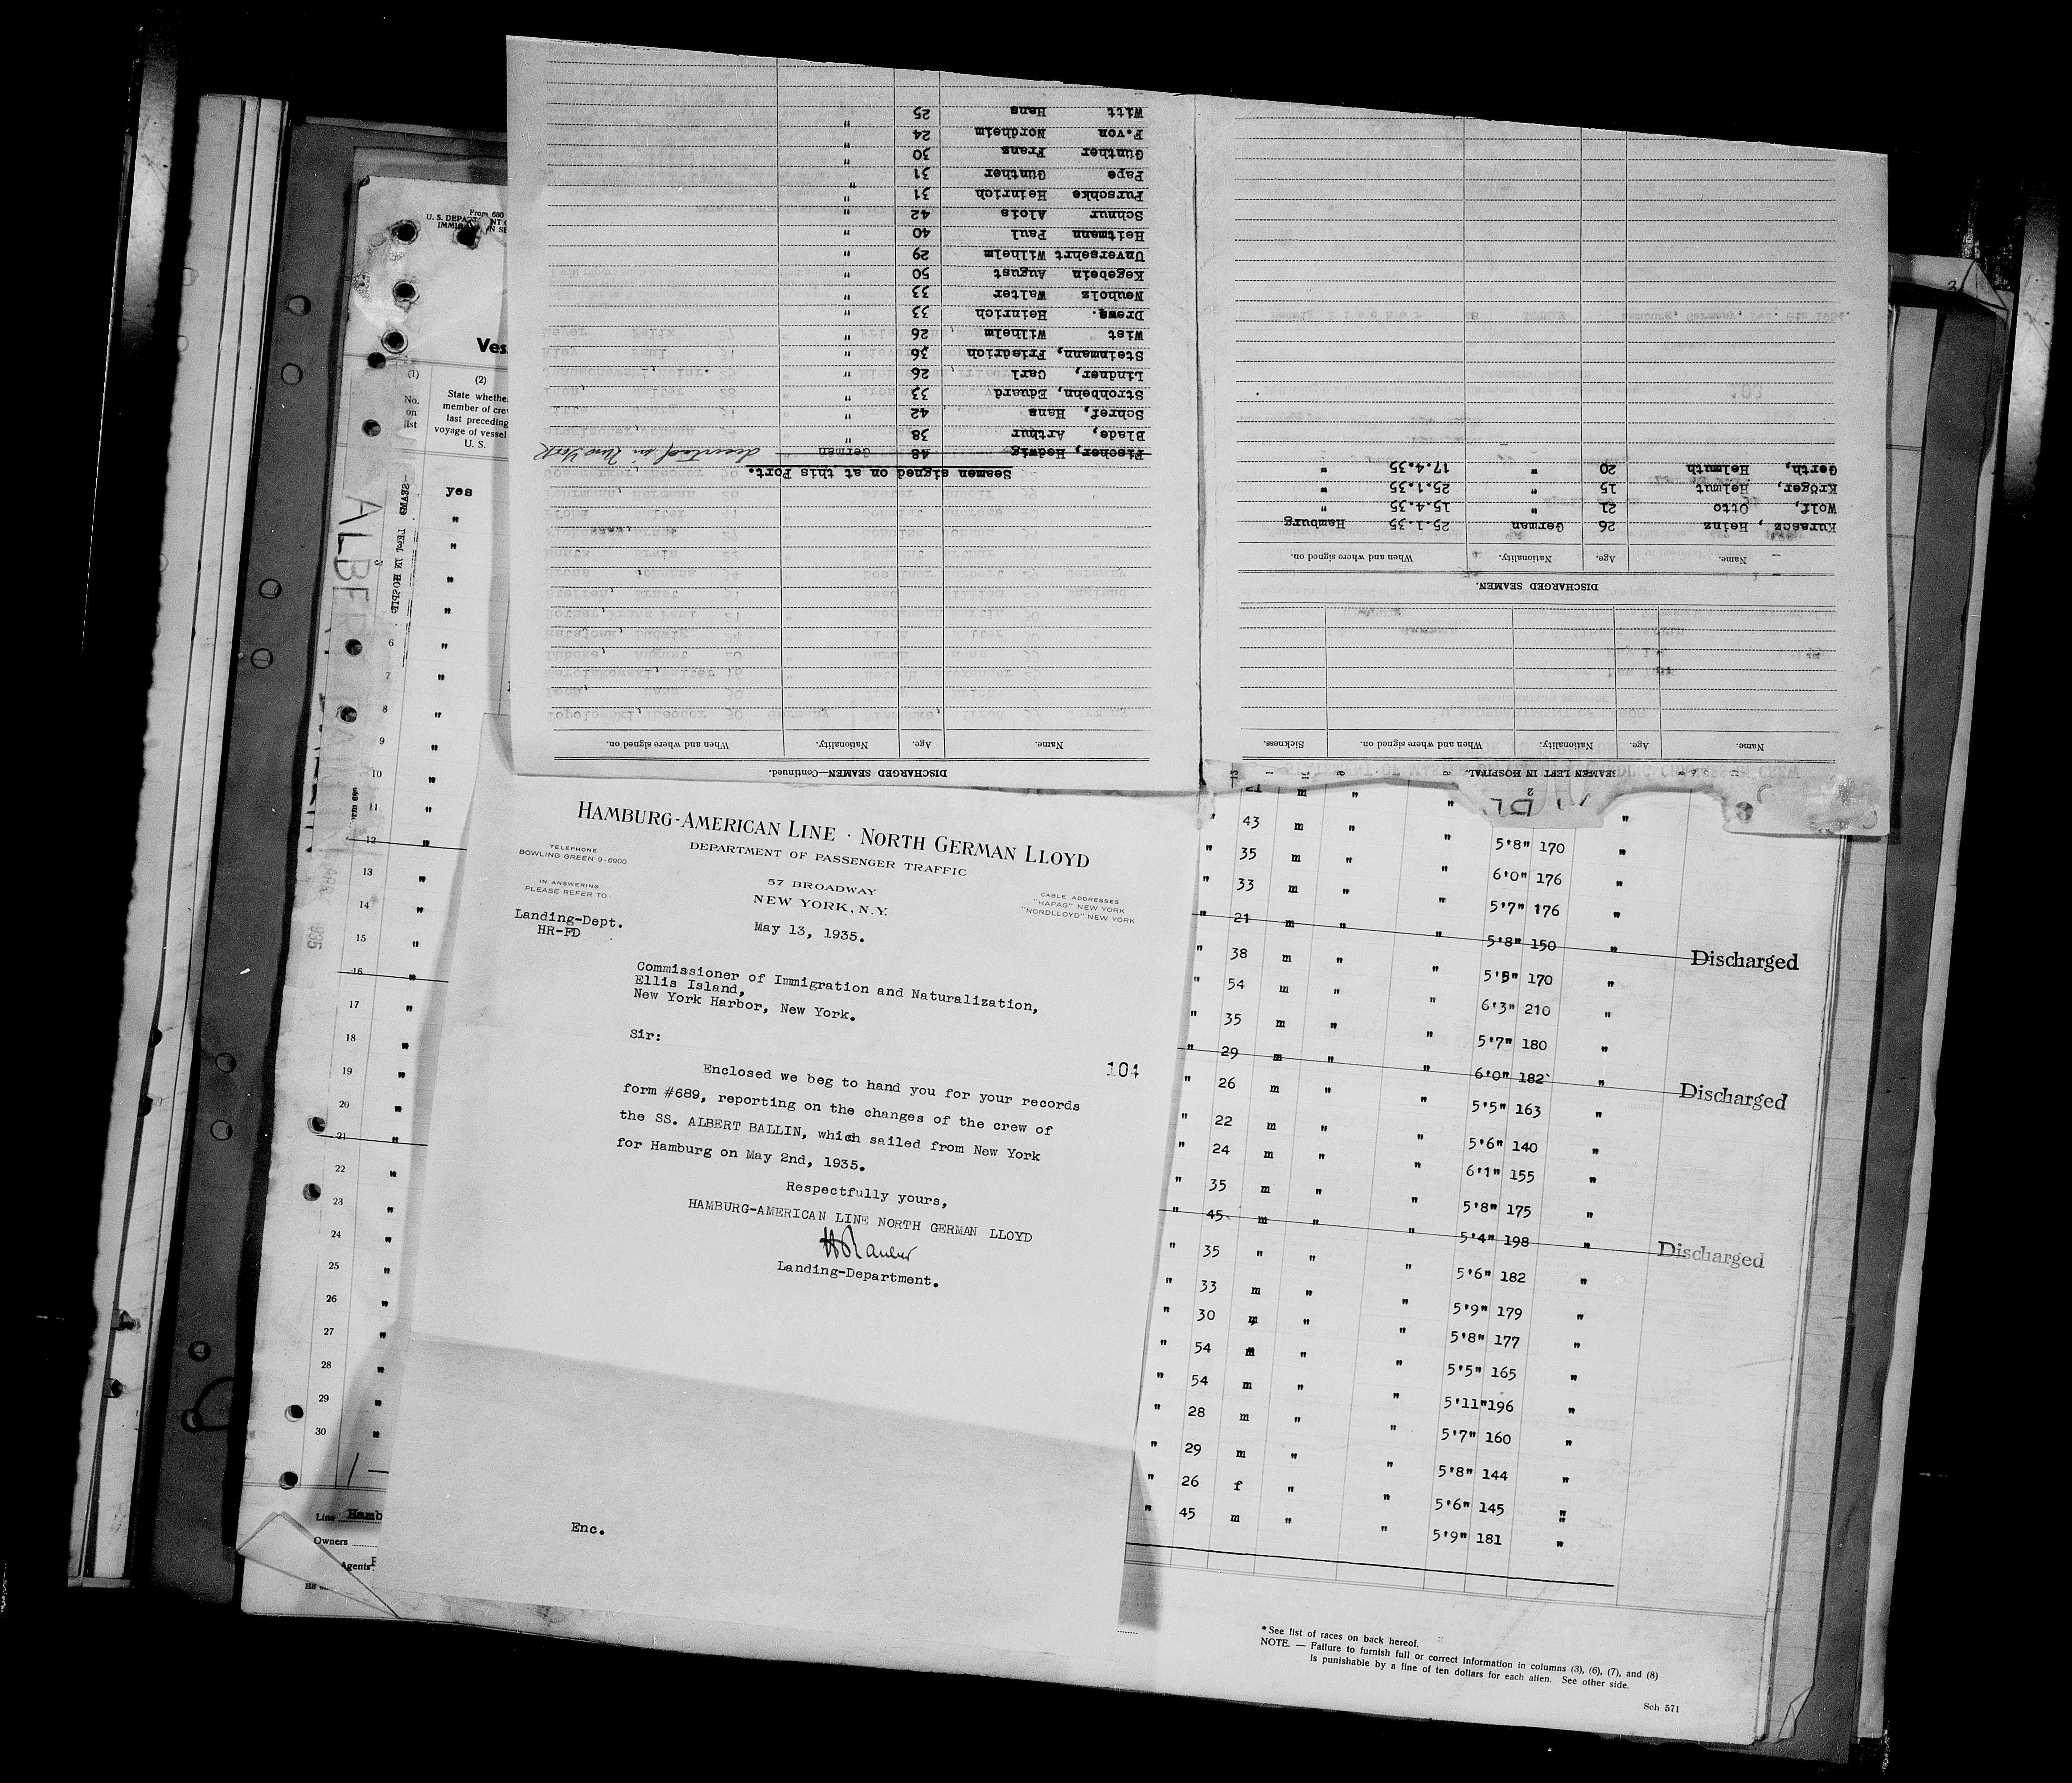 DISCHARGED SEAMEN—Continued.
Name. Age. Nationality. When and where signed on.
Seamen signed on at this Port.
Fischer, Hedwig 48 German deserted in New York
Blade, Arthur 38 "
Schref, Hans 42 "
Strohbehn, Eduard 33 "
Lindner, Carl 26 "
Steinmann, Friedrich 36 "
Wist Wilhelm 26 "
Drews. Heinrich 33 "
Neuholz Walter 33 "
Kegebein August 50 "
Unversehrt Wilhelm 29 "
Heitmann Paul 40 "
Schnur Alois 42 "
Purschke Heinrich 31 "
Pape Gunther 31 "
Gunther Franz 30 "
F.von Nordheim 24 "
Witt Hans 25 "
SEAMEN LEFT IN HOSPITAL.
Name. Age. Nationality. When and where signed on. Sickness.
DISCHARGED SEAMEN.
Name. Age. Nationality. When and where signed on.
Kurascz, Heinz 26 German 25.1.35 Hamburg
Wolf, Otto 21 " 15.4.35 "
Kröger, Helmut 15 " 25.1.35 "
Gerth, Helmuth 20 " 17.4.35 "
From 680
U. S.
Ves
(1) (2)
No. on list
State whether
member of crew
last preceding
voyage of vessel
U. S.
yes
"
"
"
"
6 "
7 "
8 "
9 "
10 "
11 "
12 "
13 "
14 "
15 "
16 "
17 "
18 "
19 "
20 "
21 "
22 "
23 "
24 "
25 "
26 "
27 "
28 "
29 "
30 "
Line Hamb
Owners
Agents
HAMBURG-AMERICAN LINE · NORTH GERMAN LLOYD
DEPARTMENT OF PASSENGER TRAFFIC
TELEPHONE
BOWLING GREEN 9-6900
57 BROADWAY
NEW YORK, N.Y.
CABLE ADDRESSES
"HAPAG" NEW YORK
"NORDLLOYD" NEW YORK
IN ANSWERING
PLEASE REFER TO:
Landing-Dept.
HR-FD
May 13, 1935.
Commissioner of Immigration and Naturalization,
Ellis Island,
New York Harbor, New York.
Sir:
104
Enclosed we beg to hand you for your records
form #689, reporting on the changes of the crew of
the SS. ALBERT BALLIN, which sailed from New York
for Hamburg on May 2nd, 1935.
Respectfully yours,
HAMBURG-AMERICAN LINE NORTH GERMAN LLOYD
Landing-Department.
Enc.
" 43 m " " 5'8" 170 "
" 35 m " " 6'0" 176 "
" 33 m " " 5'7" 176 "
" 21 m " " 5'8" 150 " Discharged
" 38 m " " 5'5" 170 "
" 54 m " " 6'3" 210 "
" 35 m " " 5'7" 180 "
" 29 m " " 6'0" 182 " Discharged
" 26 m " " 5'5" 163 "
" 22 m " " 5'6" 140 "
" 24 m " " 6'1" 155 "
" 35 m " " 5'8" 175 "
" 45 m " " 5'4" 198 " Discharged
" 35 " " " 5'6" 182 "
" 33 m " " 5'9" 179 "
" 30 m " " 5'8" 177 "
" 54 m " " 5'5" 165 "
" 54 m " " 5'11" 196 "
" 28 m " " 5'7" 160 "
" 29 m " " 5'8" 144 "
" 26 f " " 5'6" 145 "
" 45 m " " 5'9" 181 "
*See list of races on back hereof.
NOTE. — Failure to furnish full or correct information in columns (3), (6), (7), and (8)
is punishable by a fine of ten dollars for each alien. See other side.
Sch 571